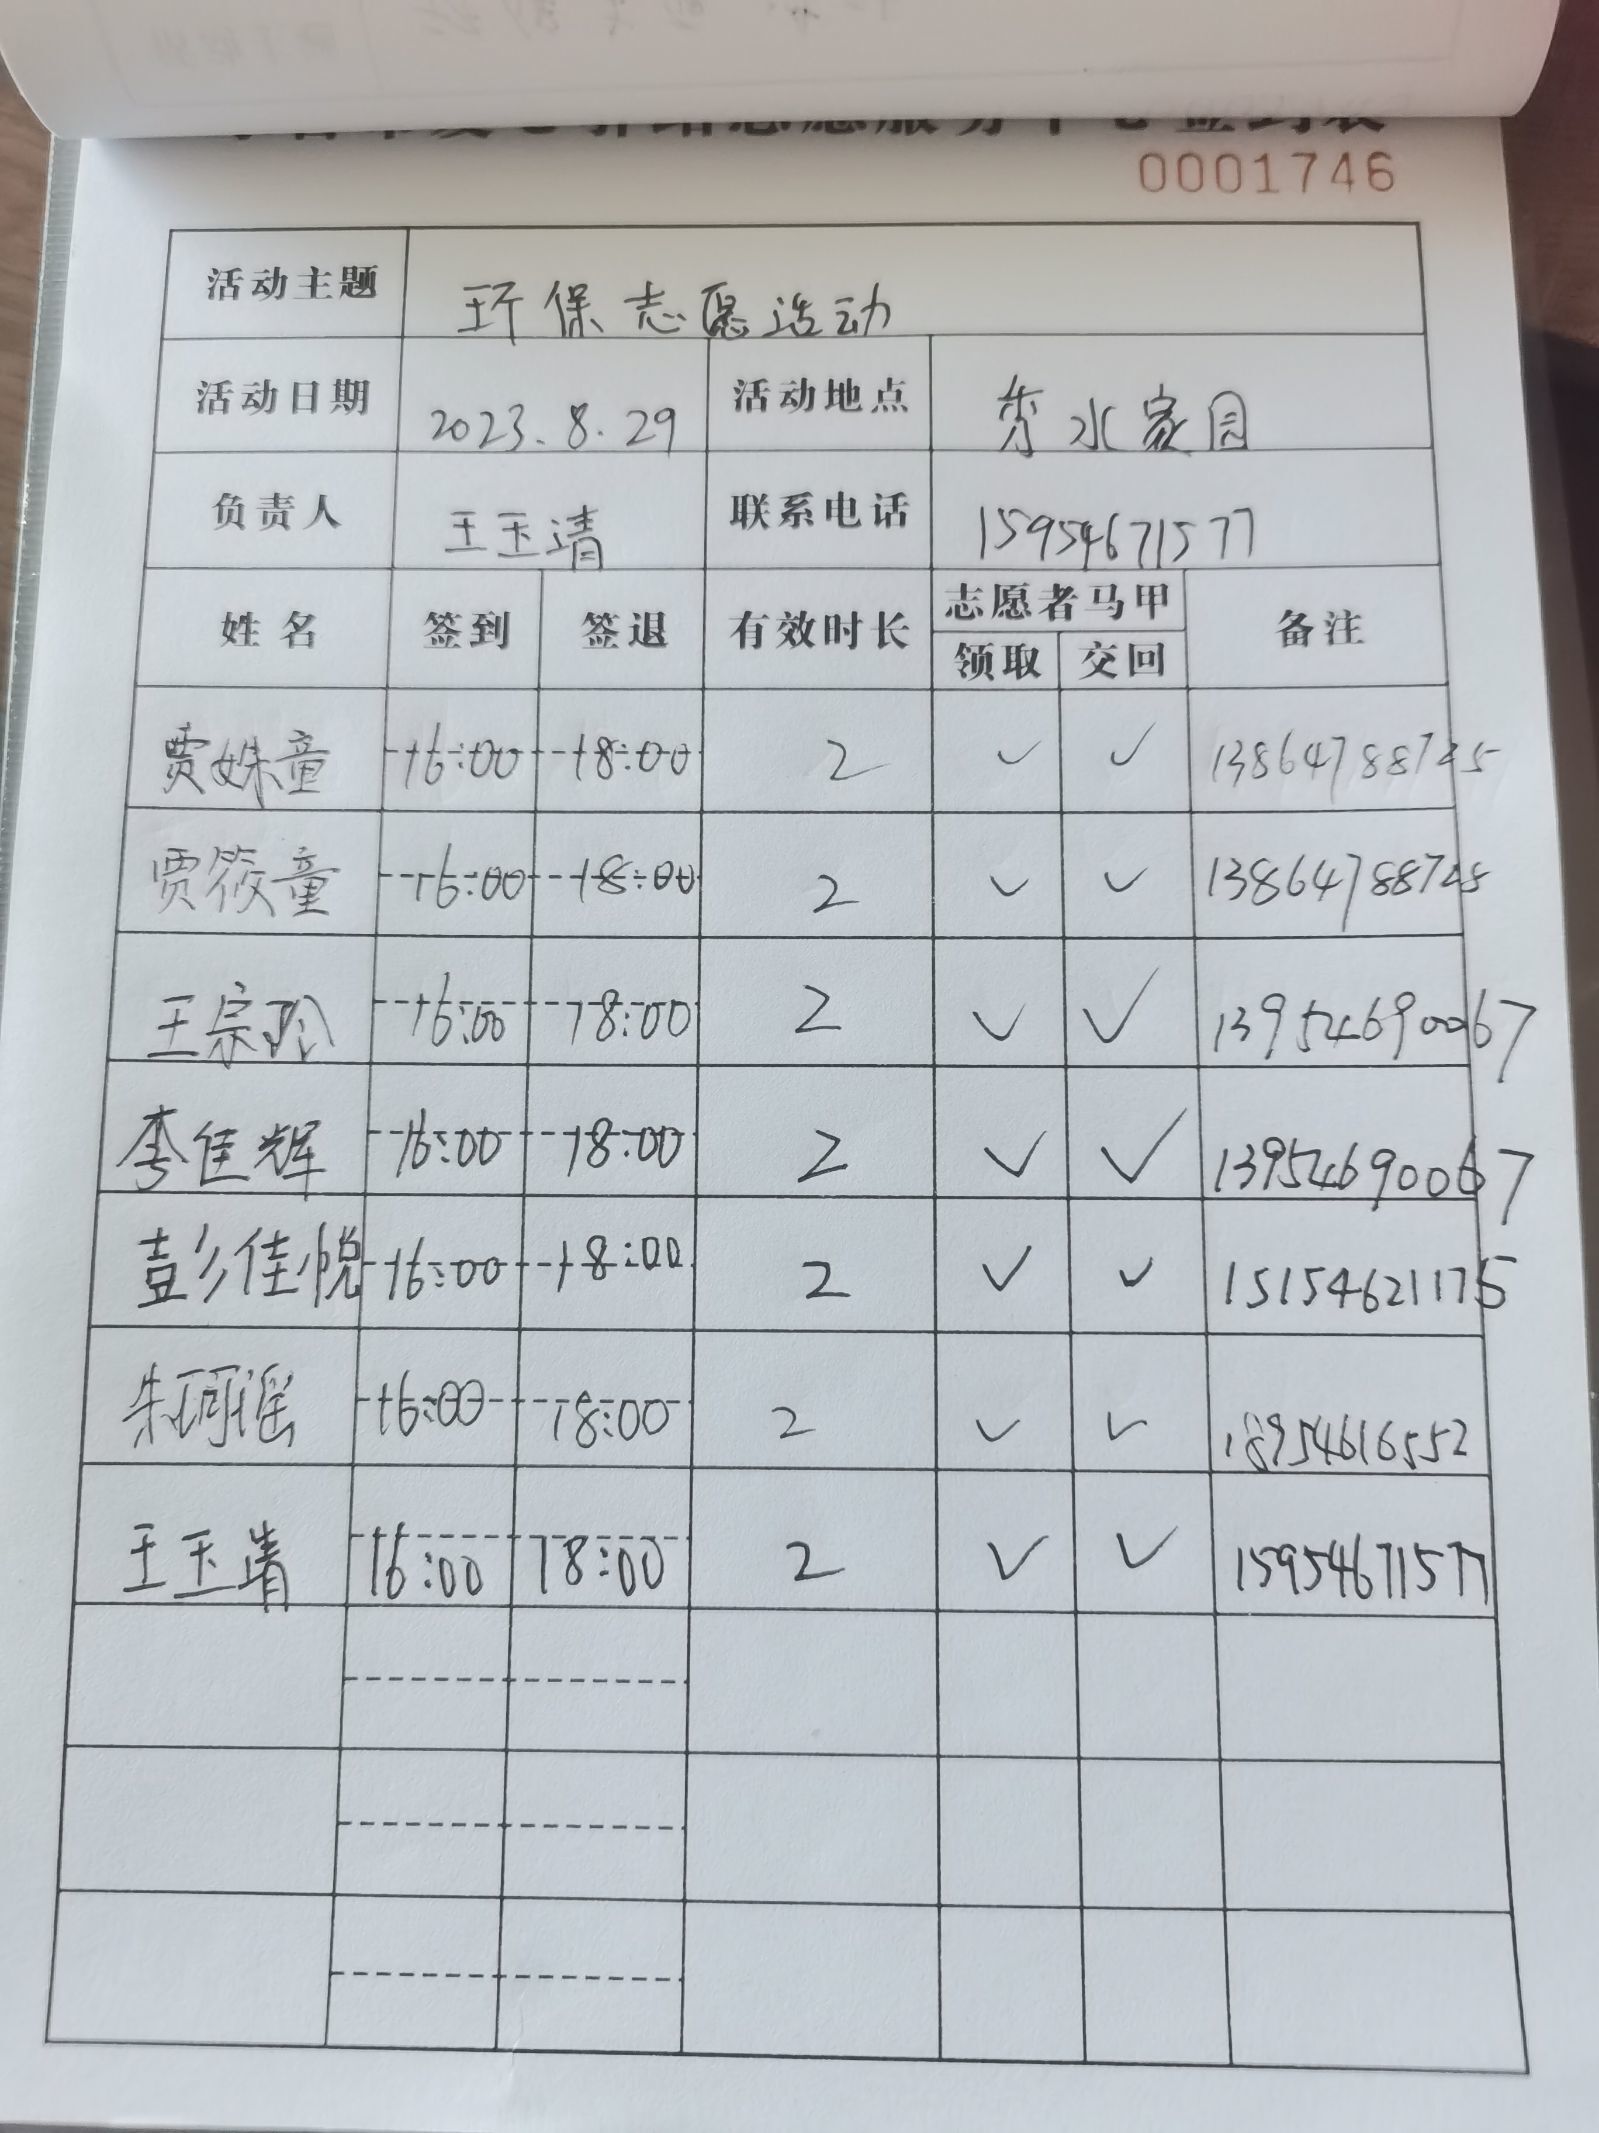 志愿服务中心签到表
0001746
活动主题 环保志愿活动
活动日期 2023.8.29 活动地点 秀水家园
负责人 王玉清 联系电话 15954671577
姓名 签到 签退 有效时长 志愿者马甲 备注
领取 交回
贾姝童 16:00 18:00 2 ✓ ✓ 13864788725
贾筱童 16:00 18:00 2 ✓ ✓ 13864788725
王宗玲 16:00 18:00 2 ✓ ✓ 13954690067
李佳辉 16:00 18:00 2 ✓ ✓ 13954690067
彭佳悦 16:00 18:00 2 ✓ ✓ 15154621175
朱珂瑶 16:00 18:00 2 ✓ ✓ 18954616552
王玉清 16:00 18:00 2 ✓ ✓ 15954671577